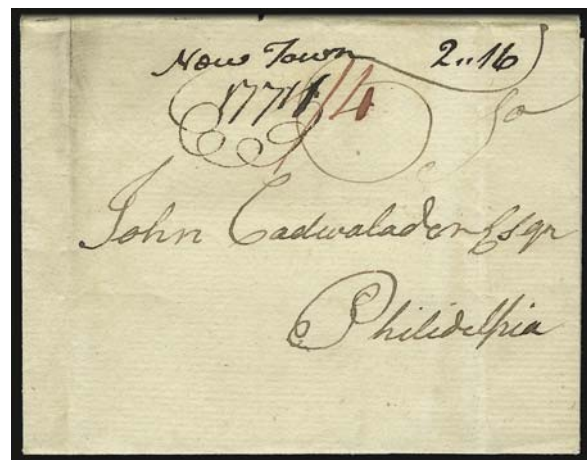 New Town 2..16
1771 1/4
To
John Cadwalader Esqr
Philidelpia